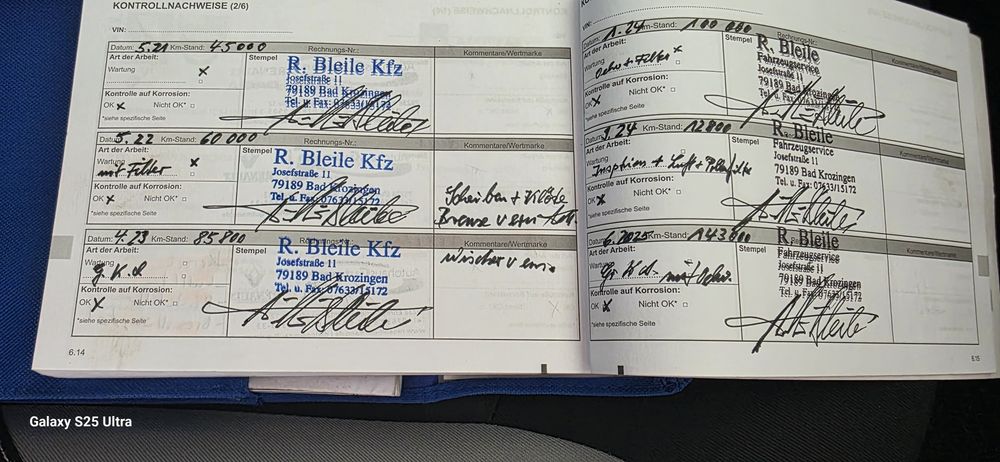 KONTROLLNACHWEISE (2/6)
VIN:
Datum: 5.21 Km-Stand: 45000 Rechnungs-Nr.: Kommentare/Wertmarke
Art der Arbeit: Stempel
Wartung x
R. Bleile Kfz
Josefstraße 11
79189 Bad Krozingen
Tel. u. Fax: 07633/15172
Kontrolle auf Korrosion:
OK x Nicht OK*
*siehe spezifische Seite
Datum: 5.22 Km-Stand: 60000 Kommentare/Wertmarke
Art der Arbeit: Stempel
Wartung x
mit Filter
R. Bleile Kfz
Josefstraße 11
79189 Bad Krozingen
Tel. u. Fax: 07633/15172
Scheiben + Klötze
Bremse
Kontrolle auf Korrosion:
OK x Nicht OK*
*siehe spezifische Seite
Datum: 4.23 Km-Stand: 85800 Rechnungs-Nr.: Kommentare/Wertmarke
Art der Arbeit: Stempel
g. K.d
R. Bleile Kfz
Josefstraße 11
79189 Bad Krozingen
Tel. u. Fax: 07633/15172
Wischer
Kontrolle auf Korrosion:
OK x Nicht OK*
*siehe spezifische Seite
6.14
VIN:
Datum: 1.24 Km-Stand: 100 000 Rechnungs-Nr.: Kommentare/Wertmarke
Art der Arbeit: Stempel
Wartung x
+ Filter
R. Bleile
Fahrzeugservice
Josefstraße 11
79189 Bad Krozingen
Tel. u. Fax: 07633/15172
Kontrolle auf Korrosion:
OK x Nicht OK*
*siehe spezifische Seite
Datum: .24 Km-Stand: 12800 Kommentare/Wertmarke
Art der Arbeit: Stempel
Wartung
+ Luft +
R. Bleile
Fahrzeugservice
Josefstraße 11
79189 Bad Krozingen
Tel. u. Fax: 07633/15172
Kontrolle auf Korrosion:
OK x Nicht OK*
*siehe spezifische Seite
6.2025 Km-Stand: 143 000 Kommentare/Wertmarke
Art der Arbeit: Stempel
Gr. K d. mit
R. Bleile
Fahrzeugservice
Josefstraße 11
79189 Bad Krozingen
Tel. u. Fax: 07633/15172
Kontrolle auf Korrosion:
OK x Nicht OK*
*siehe spezifische Seite
6.15
Galaxy S25 Ultra